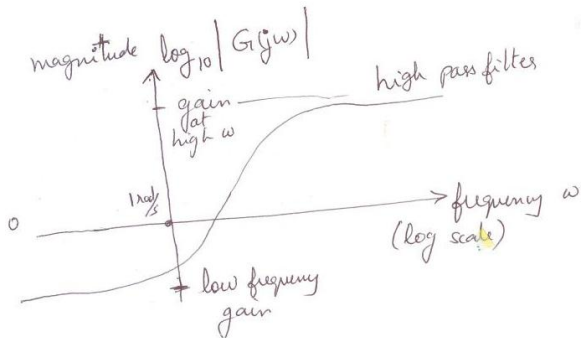 magnitude log₁₀ |G(jω)|
high pass filter
gain
at
high ω
1 rad/s
0
frequency ω
(log scale)
low frequency
gain